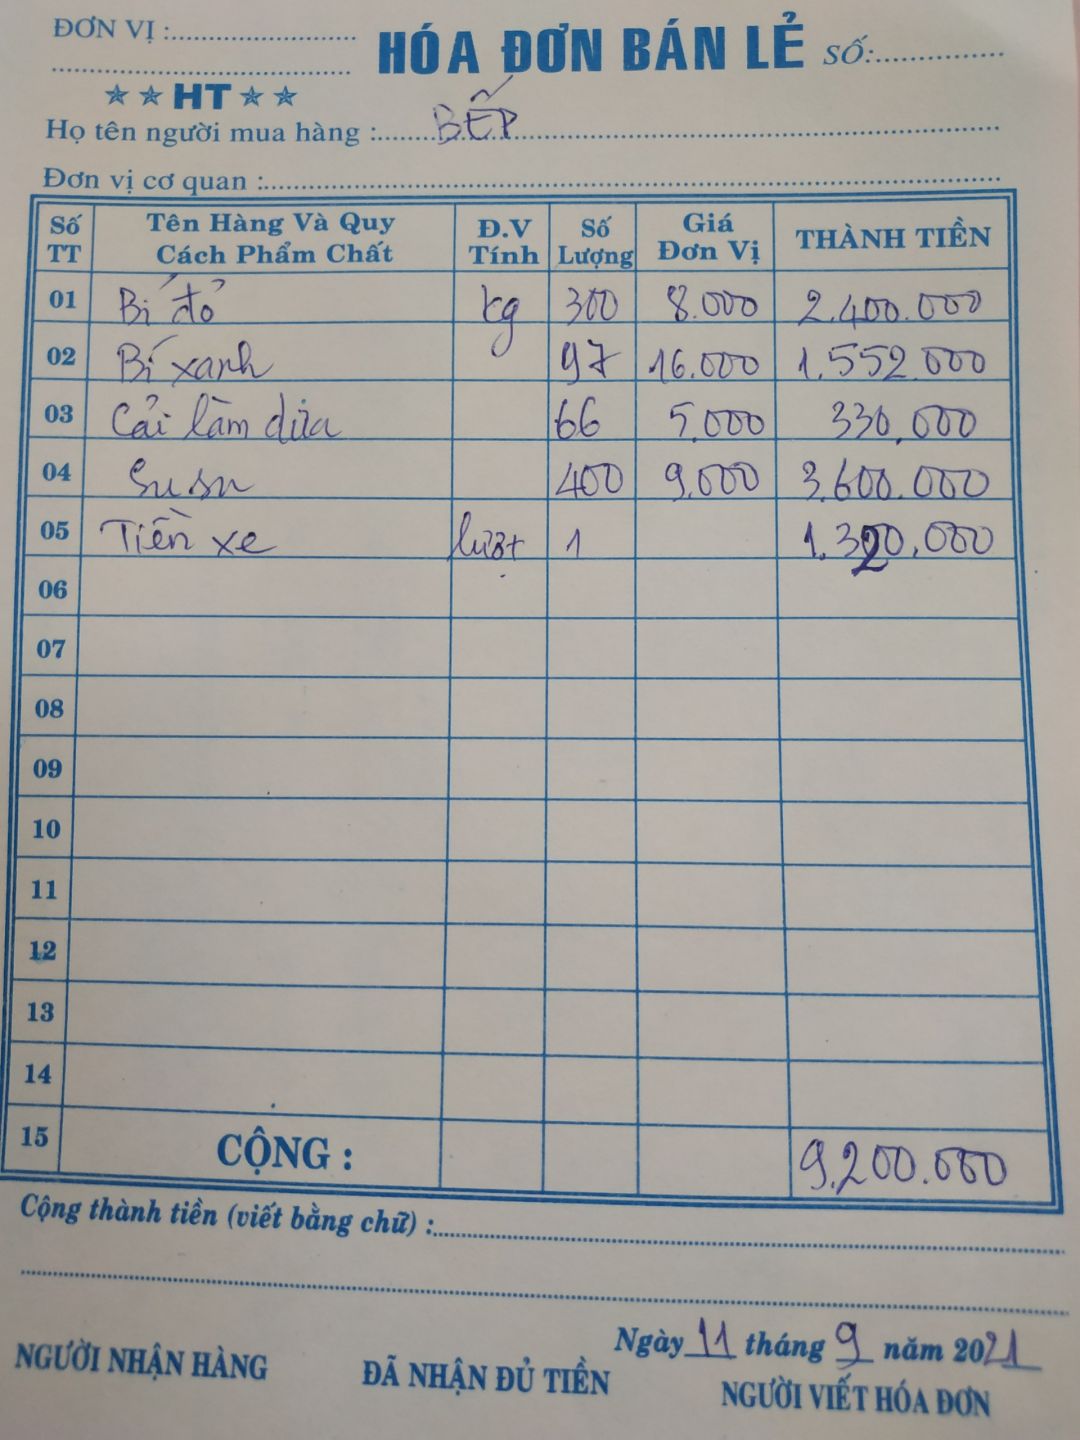 ĐƠN VỊ :
HÓA ĐƠN BÁN LẺ SỐ:
★ ★ HT ★ ★
Họ tên người mua hàng : BẾP
Đơn vị cơ quan :
Số TT | Tên Hàng Và Quy Cách Phẩm Chất | Đ.V Tính | Số Lượng | Giá Đơn Vị | THÀNH TIỀN
01 Bí đỏ kg 300 8.000 2.400.000
02 Bí xanh 97 16.000 1.552.000
03 Cải làm dưa 66 5.000 330.000
04 Su su 400 9.000 3.600.000
05 Tiền xe lượt 1 1.320.000
06
07
08
09
10
11
12
13
14
15 CỘNG : 9.200.000
Cộng thành tiền (viết bằng chữ) :
Ngày 11 tháng 9 năm 2021
NGƯỜI NHẬN HÀNG ĐÃ NHẬN ĐỦ TIỀN NGƯỜI VIẾT HÓA ĐƠN